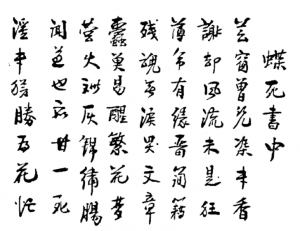 蝶死書中
芸窗曾染香
謝却風流未是狂
薄命有緣簡籍
残魂無淚哭文章
蠹易醒繁花夢
螢火灰錦繡腸
聞道也應甘一死
中猶勝為花忙